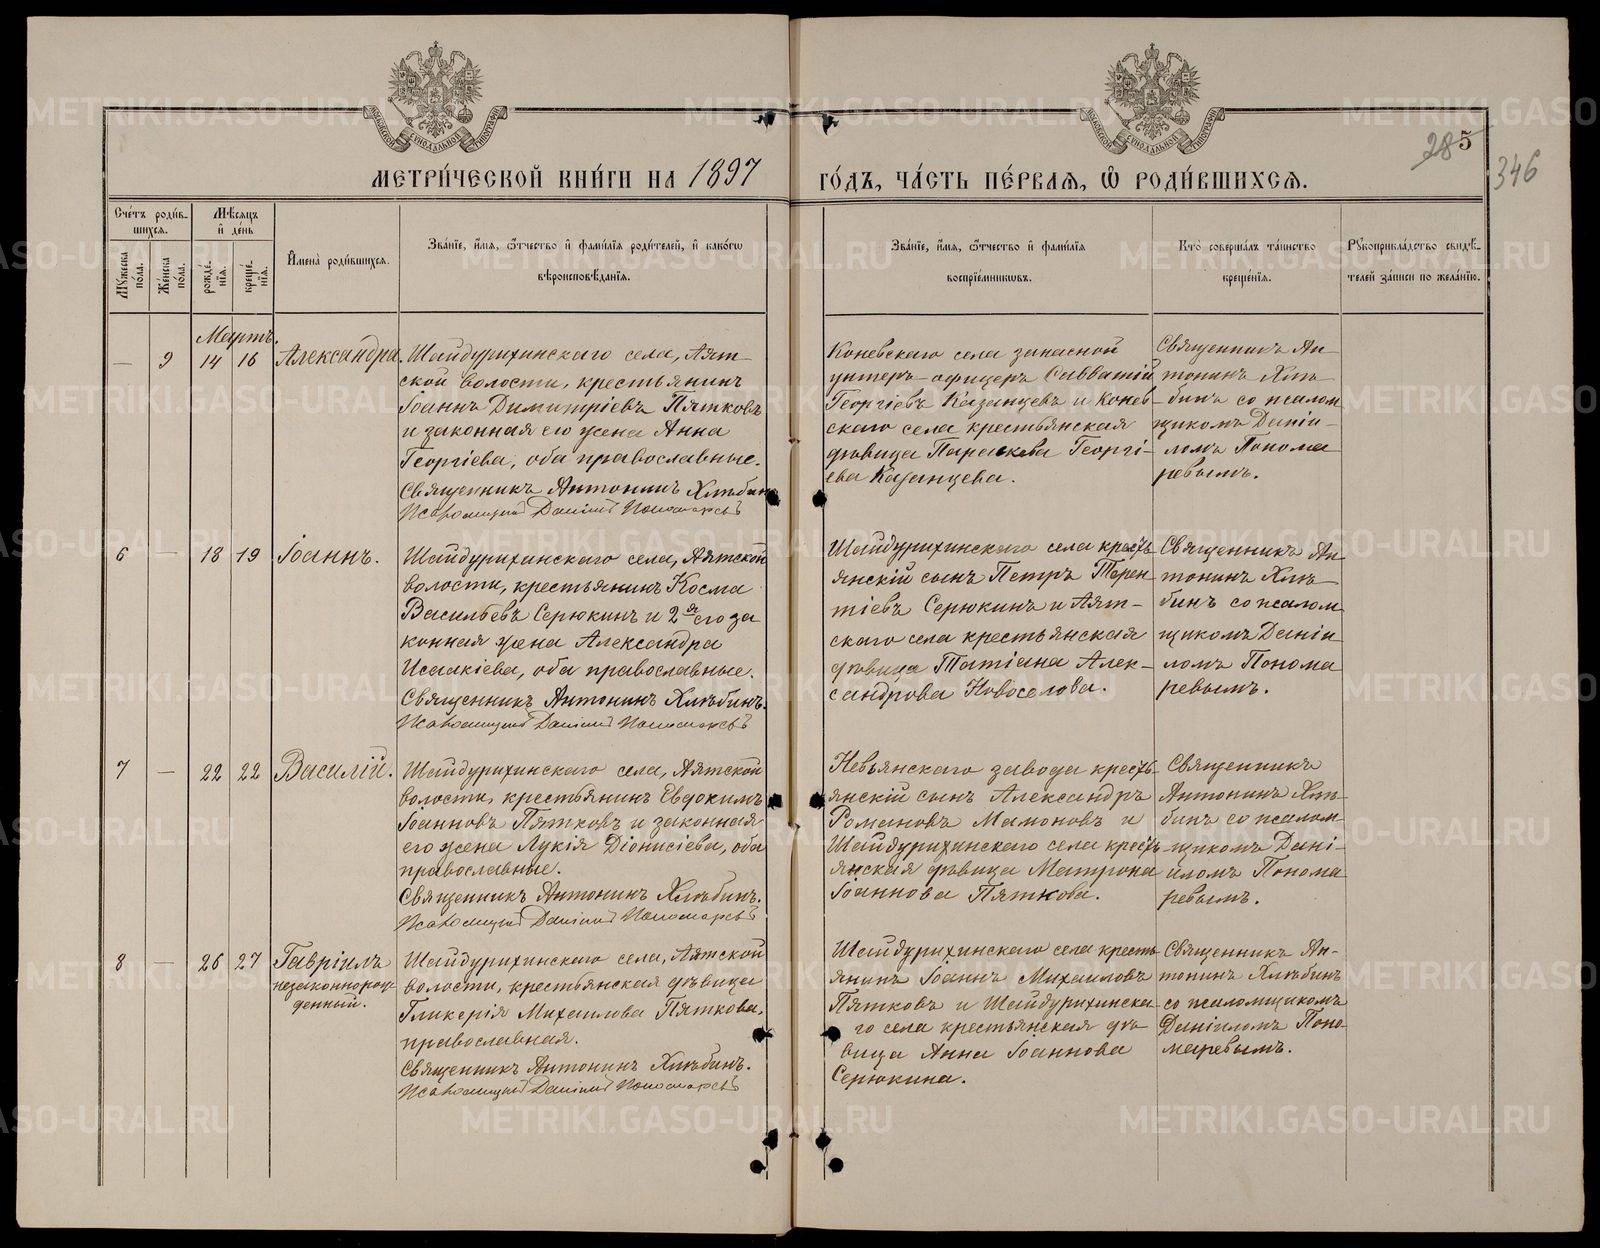 МЕТРИ́ЧЕСКОЙ КНИ́ГИ НА 1897 ГО́ДЪ, ЧА́СТЬ ПЕ́РВАЯ, Ѡ РОДИ́ВШИХСЯ.
28 5
346
Сче́тъ роди́в-
шихся.
Мꙋ́жеска по́ла.
Же́нска по́ла.
Мѣ́сяцъ
и де́нь
рожде́-
нїя.
креще́-
нїя.
И҆мена̀ роди́вшихся.
Зва́нїе, и҆́мя, ѻ҆́тчество и҆ фами́лїя роди́телей, и҆ како́гѡ
вѣроисповѣ́данїя.
Зва́нїе, и҆́мя, ѻ҆́тчество и҆ фами́лїя
воспрїе́мниковъ.
Кто̀ соверша́лъ та́инство
креще́нїя.
Рꙋкоприкла́дство свидѣ́-
телей за́писи по жела́нїю.
Мартъ.
— 9 14 16 Александра.
Шайдурихинскаго села, Аят-
ской волости, крестьянинъ
Іоаннъ Димитріевъ Пятковъ
и законная его жена Анна
Георгіева, оба православные.
Священникъ Антонинъ Хлѣбинъ
Псаломщикъ Даніилъ Пономаревъ
Коневскаго села запасной
унтеръ-офицеръ Савватій
Георгіевъ Казанцевъ и Конев-
скаго села крестьянская
дѣвица Параскева Георгі-
ева Казанцева.
Священникъ Ан-
тонинъ Хлѣ-
бинъ со псалом
щикомъ Даніи-
ломъ Понома
ревымъ.
6 — 18 19 Іоаннъ.
Шайдурихинскаго села, Аятской
волости, крестьянинъ Косма
Васильевъ Серюкинъ и 2я его за
конная жена Александра
Исаакіева, оба православные.
Священникъ Антонинъ Хлѣбинъ.
Псаломщикъ Даніилъ Пономаревъ
Шайдурихинскаго села кресть
янскій сынъ Петръ Терен-
тіевъ Серюкинъ и Аят-
скаго села крестьянская
дѣвица Татіана Алек-
сандрова Новоселова.
Священникъ Ан-
тонинъ Хлѣ-
бинъ со псалом
щикомъ Даніи
ломъ Понома
ревымъ.
7 — 22 22 Василій.
Шайдурихинскаго села, Аятской
волости, крестьянинъ Евдокимъ
Іоанновъ Пятковъ и законная
его жена Лукія Діонисіева, оба
православные.
Священникъ Антонинъ Хлѣбинъ.
Псаломщикъ Даніилъ Пономаревъ
Невьянскаго завода кресть-
янскій сынъ Александръ
Романовъ Мамоновъ и
Шайдурихинскаго села кресть-
янская дѣвица Матрона
Іоаннова Пяткова.
Священникъ
Антонинъ Хлѣ-
бинъ со псалом-
щикомъ Дані-
иломъ Понома
ревымъ.
8 — 26 27 Гавріилъ
незаконнорож-
денный.
Шайдурихинскаго села, Аятской
волости, крестьянская дѣвица
Гликерія Михаилова Пяткова,
православная.
Священникъ Антонинъ Хлѣбинъ.
Псаломщикъ Даніилъ Пономаревъ
Шайдурихинскаго села кресть
янинъ Іоаннъ Михаиловъ
Пятковъ и Шайдурихинска-
го села крестьянская дѣ-
вица Анна Іоаннова
Серюкина.
Священникъ Ан-
тонинъ Хлѣбинъ
со псаломщикомъ
Даніиломъ Поно-
маревымъ.